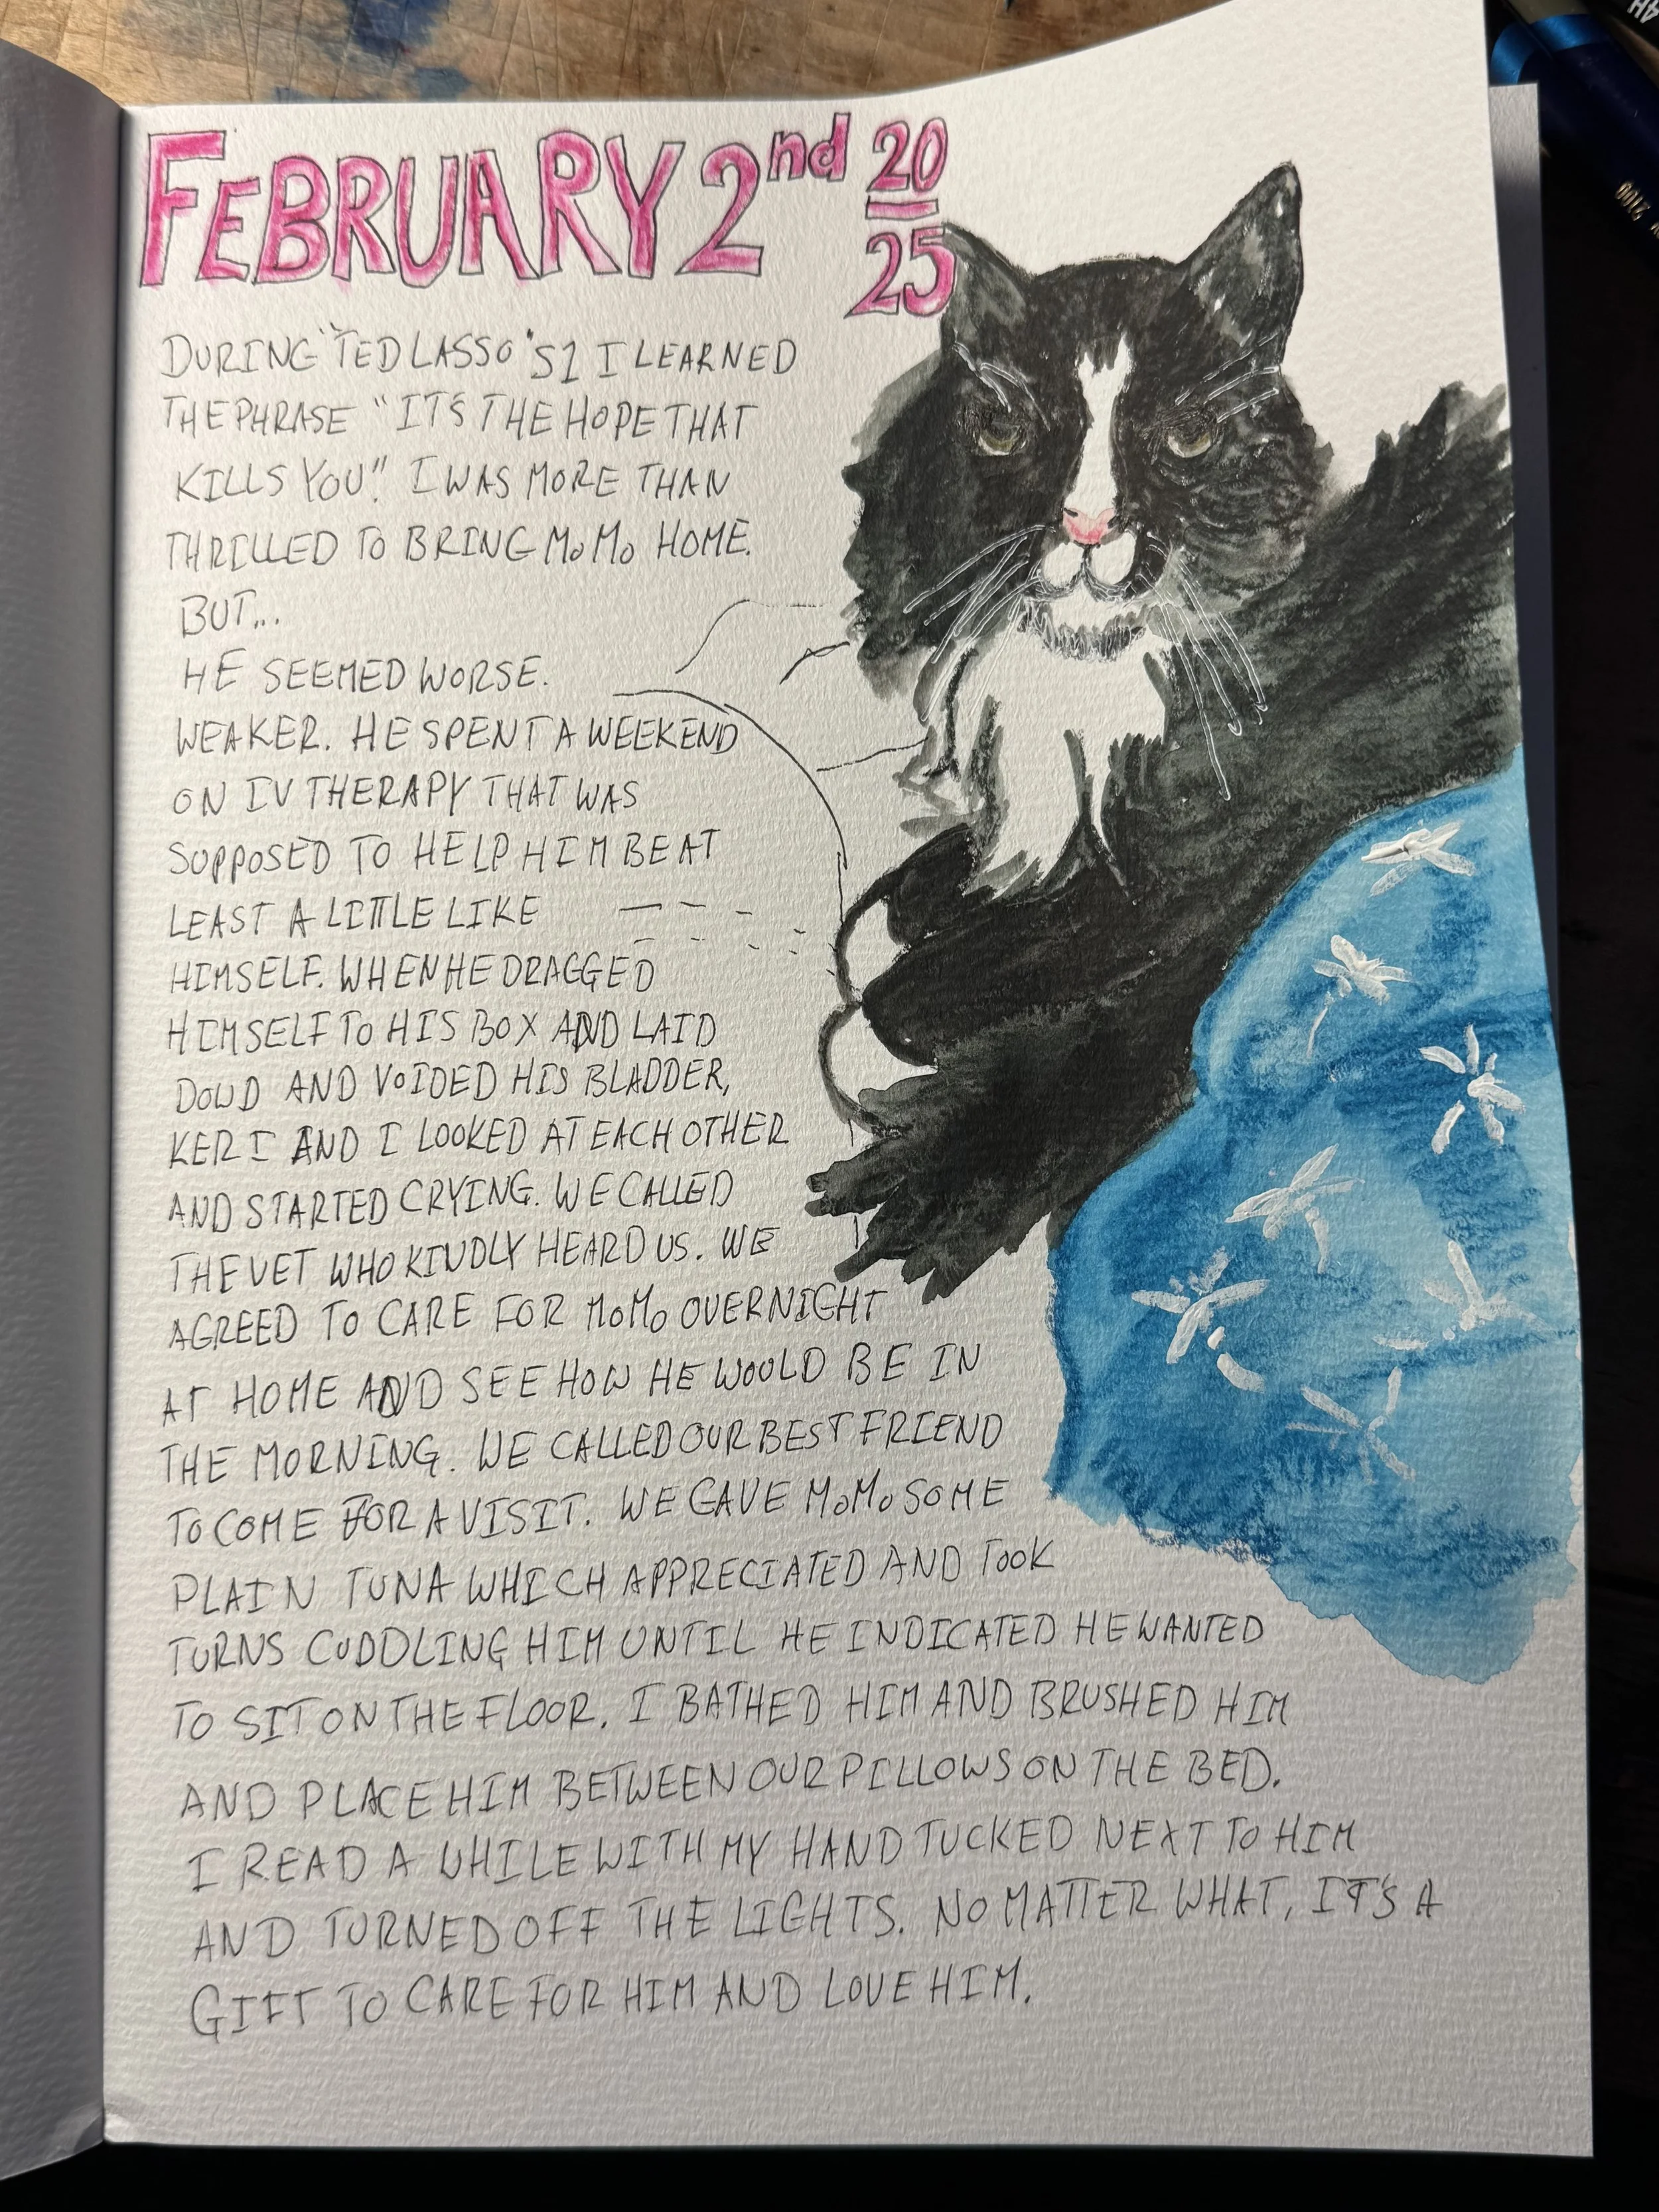 FEBRUARY 2nd 20
25
DURING "TED LASSO" S1 I LEARNED
THE PHRASE "IT'S THE HOPE THAT
KILLS YOU". I WAS MORE THAN
THRILLED TO BRING MoMo HOME.
BUT...
HE SEEMED WORSE.
WEAKER. HE SPENT A WEEKEND
ON IV THERAPY THAT WAS
SUPPOSED TO HELP HIM BE AT
LEAST A LITTLE LIKE
HIMSELF. WHEN HE DRAGGED
HIMSELF TO HIS BOX AND LAID
DOWD AND VOIDED HIS BLADDER,
KERI AND I LOOKED AT EACH OTHER
AND STARTED CRYING. WE CALLED
THE VET WHO KINDLY HEARD US. WE
AGREED TO CARE FOR MoMo OVERNIGHT
AT HOME AND SEE HOW HE WOULD BE IN
THE MORNING. WE CALLED OUR BEST FRIEND
TO COME FOR A VISIT. WE GAVE MoMo SOME
PLAIN TUNA WHICH APPRECIATED AND TOOK
TURNS CUDDLING HIM UNTIL HE INDICATED HE WANTED
TO SIT ON THE FLOOR. I BATHED HIM AND BRUSHED HIM
AND PLACE HIM BETWEEN OUR PILLOWS ON THE BED.
I READ A WHILE WITH MY HAND TUCKED NEXT TO HIM
AND TURNED OFF THE LIGHTS. NO MATTER WHAT, IT'S A
GIFT TO CARE FOR HIM AND LOVE HIM.
4H
2100